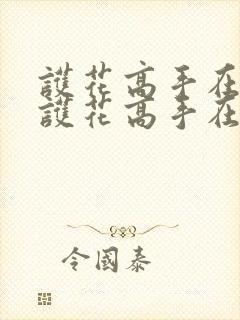 護花高手在
護花高手在
令國泰